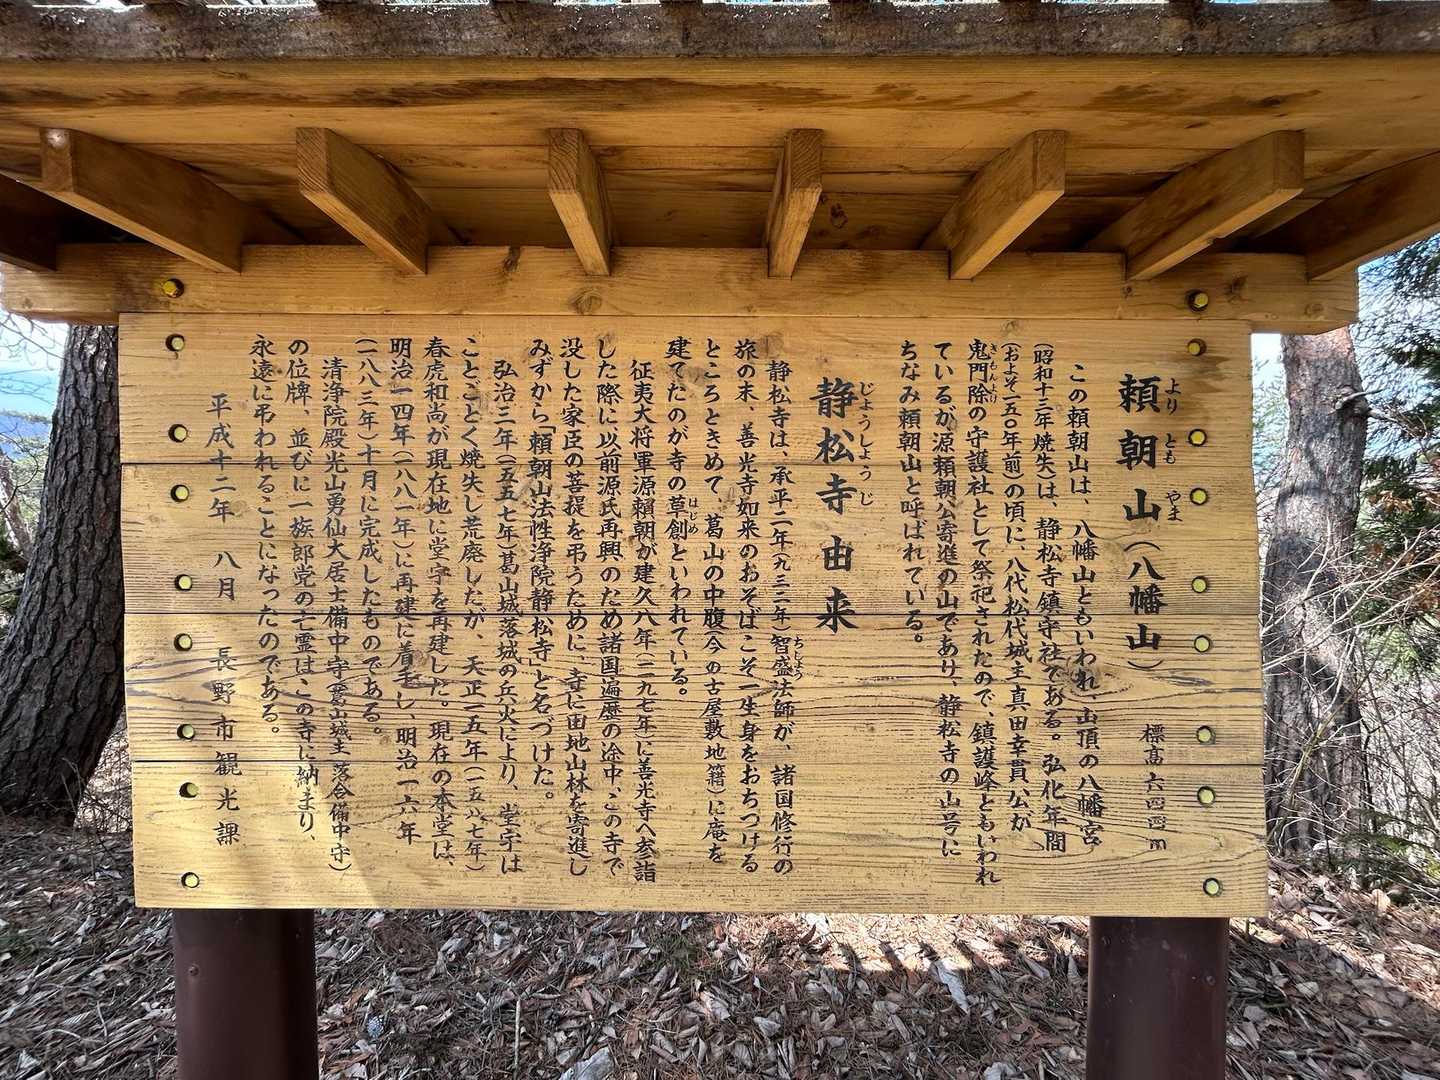 頼朝山（八幡山）　標高 六四四 m
より とも やま
この頼朝山は、八幡山ともいわれ、山頂の八幡宮
（昭和十三年焼失）は、静松寺鎮守社である。弘化年間
（およそ一五〇年前）の頃に、八代松代城主真田幸貫公が
鬼門除の守護社として祭祀されたので、鎮護峰ともいわれ
きもんより
ているが源頼朝公寄進の山であり、静松寺の山号に
ちなみ頼朝山と呼ばれている。
静松寺由来
じょうしょうじ
静松寺は、承平二年（九三二年）智盛法師が、諸国修行の
ちしょう
旅の末、善光寺如来のおそばこそ一生身をおちつける
ところときめて、葛山の中腹（今の古屋敷地籍）に庵を
建てたのが寺の草創といわれている。
はじめ
征夷大将軍源頼朝が建久八年（一一九七年）に善光寺へ参詣
した際に以前源氏再興のため諸国遍歴の途中、この寺で
没した家臣の菩提を弔うために、寺に田地山林を寄進し
みずから「頼朝山法性浄院静松寺」と名づけた。
弘治三年（一五五七年）葛山城落城の兵火により、堂宇は
ことごとく焼失し荒廃したが、天正一五年（一五八七年）
春虎和尚が現在地に堂宇を再建した。現在の本堂は、
明治一四年（一八八一年）に再建に着手し、明治一六年
（一八八三年）十月に完成したものである。
清浄院殿光山勇仙大居士備中守（葛山城主 落合備中守）
の位牌、並びに一族郎党の亡霊はこの寺に納まり、
永遠に弔われることになったのである。
平成十二年 八月　長野市観光課